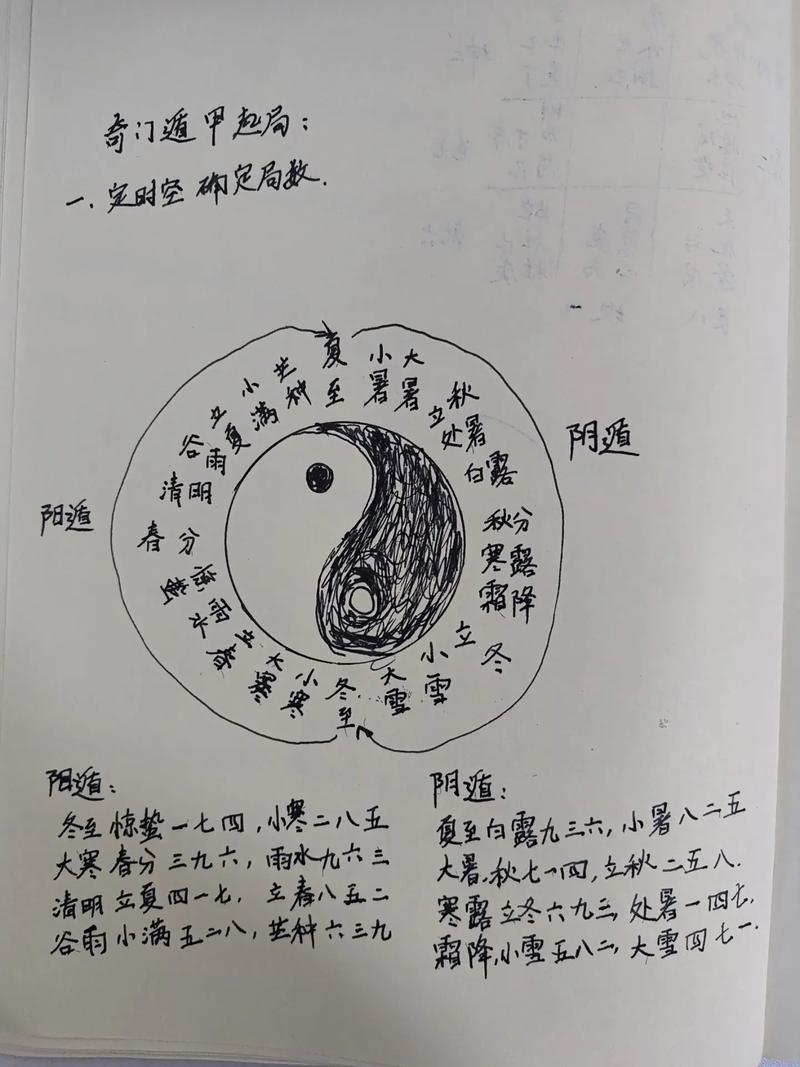 奇门遁甲起局：
一、定时空 确定局数.
夏至
小暑
大暑
立秋
处暑
白露
秋分
寒露
霜降
立冬
小雪
大雪
冬至
小寒
大寒
立春
雨水
惊蛰
春分
清明
谷雨
立夏
小满
芒种
阳遁
阴遁
阳遁：
冬至惊蛰一七四，小寒二八五
大寒春分三九六，雨水九六三
清明立夏四一七，立春八五二
谷雨小满五二八，芒种六三九
阴遁：
夏至白露九三六，小暑八二五
大暑.秋七一四，立秋二五八.
寒露立冬六九三，处暑一四七.
霜降，小雪五八二，大雪四七一.